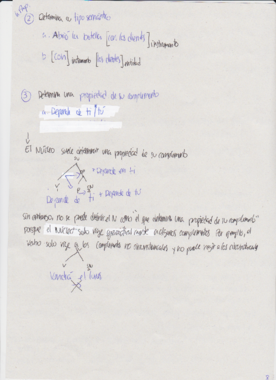 ② Determina su tipo semántico
a. Abrió la botella [con los dientes] instrumento
b. [con] instrumento [los dientes] entidad
③ Determina una propiedad de su complemento
a. Depende de ti / *tú
↓
El Núcleo suele determinar una propiedad de su complemento
Depende de ti
Sin embargo, no se puede definir el N como el que determina una propiedad de su complemento
porque el núcleo solo rige gramaticalmente algunos complementos. Por ejemplo, el
verbo solo rige a los complementos no circunstanciales y no puede regir a los circunstanciales
Vendrá el lunes